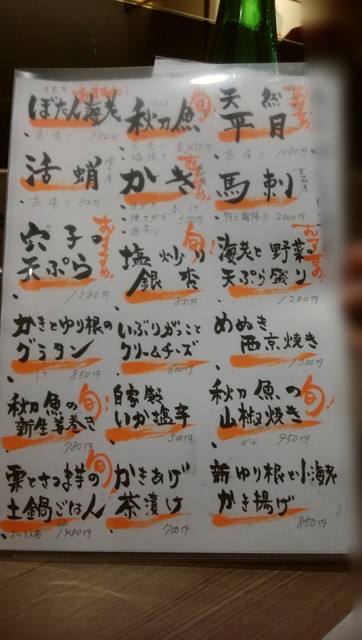 おすすめ!
ぼたん海老
お造り 980円
旬!
秋刀魚
お造り
塩焼き
おすすめ!
天然
平目
お造り 1080円
活蛸
お造り 800円
おすすめ!
かき
酒蒸し
馬刺
特上霜降り 2000円
おすすめ!
穴子の
天ぷら
1280円
旬!
塩炒り
銀杏
800円
おすすめ!
海老と野菜
天ぷら盛り
1280円
かきとゆり根の
グラタン
850円
いぶりがっこと
クリームチーズ
600円
めぬき
西京焼き
1300円
旬!
秋刀魚の
新生姜巻き
780円
自家製
いか塩辛
500円
旬!
秋刀魚の
山椒焼き
950円
旬!
栗とさつま芋の
土鍋ごはん
1480円
かきあげ
茶漬け
700円
新ゆり根と小海老
かき揚げ
850円